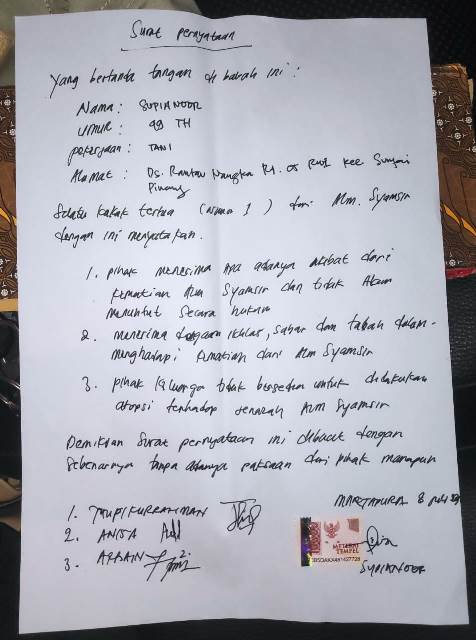 Surat pernyataan
Yang bertanda tangan di bawah ini :
Nama : SUPIANOOR
Umur : 49 TH
pekerjaan : TANI
Alamat : Ds. Rantau Nangka Rt. 05 RW1 Kec Sungai
Pinang
Selaku kakak tertua ( 1 ) dari Alm. Syamsir
dengan ini menyatakan.
1. pihak menerima apa adanya akibat dari
kematian Alm Syamsir dan tidak Akan
menuntut secara hukum
2. menerima dengan ikhlas, sabar dan tabah dalam
menghadapi kematian dari Alm Syamsir
3. pihak keluarga tidak bersedia untuk dilakukan
otopsi terhadap jenazah Alm Syamsir
Demikian Surat pernyataan ini dibuat dengan
sebenarnya tanpa adanya paksaan dari pihak manapun
MARTAPURA 8
1. TAUPIKURRAHMAN
2. ANITA
3. ARBAIN
METERAI
TEMPEL
SUPIANOOR